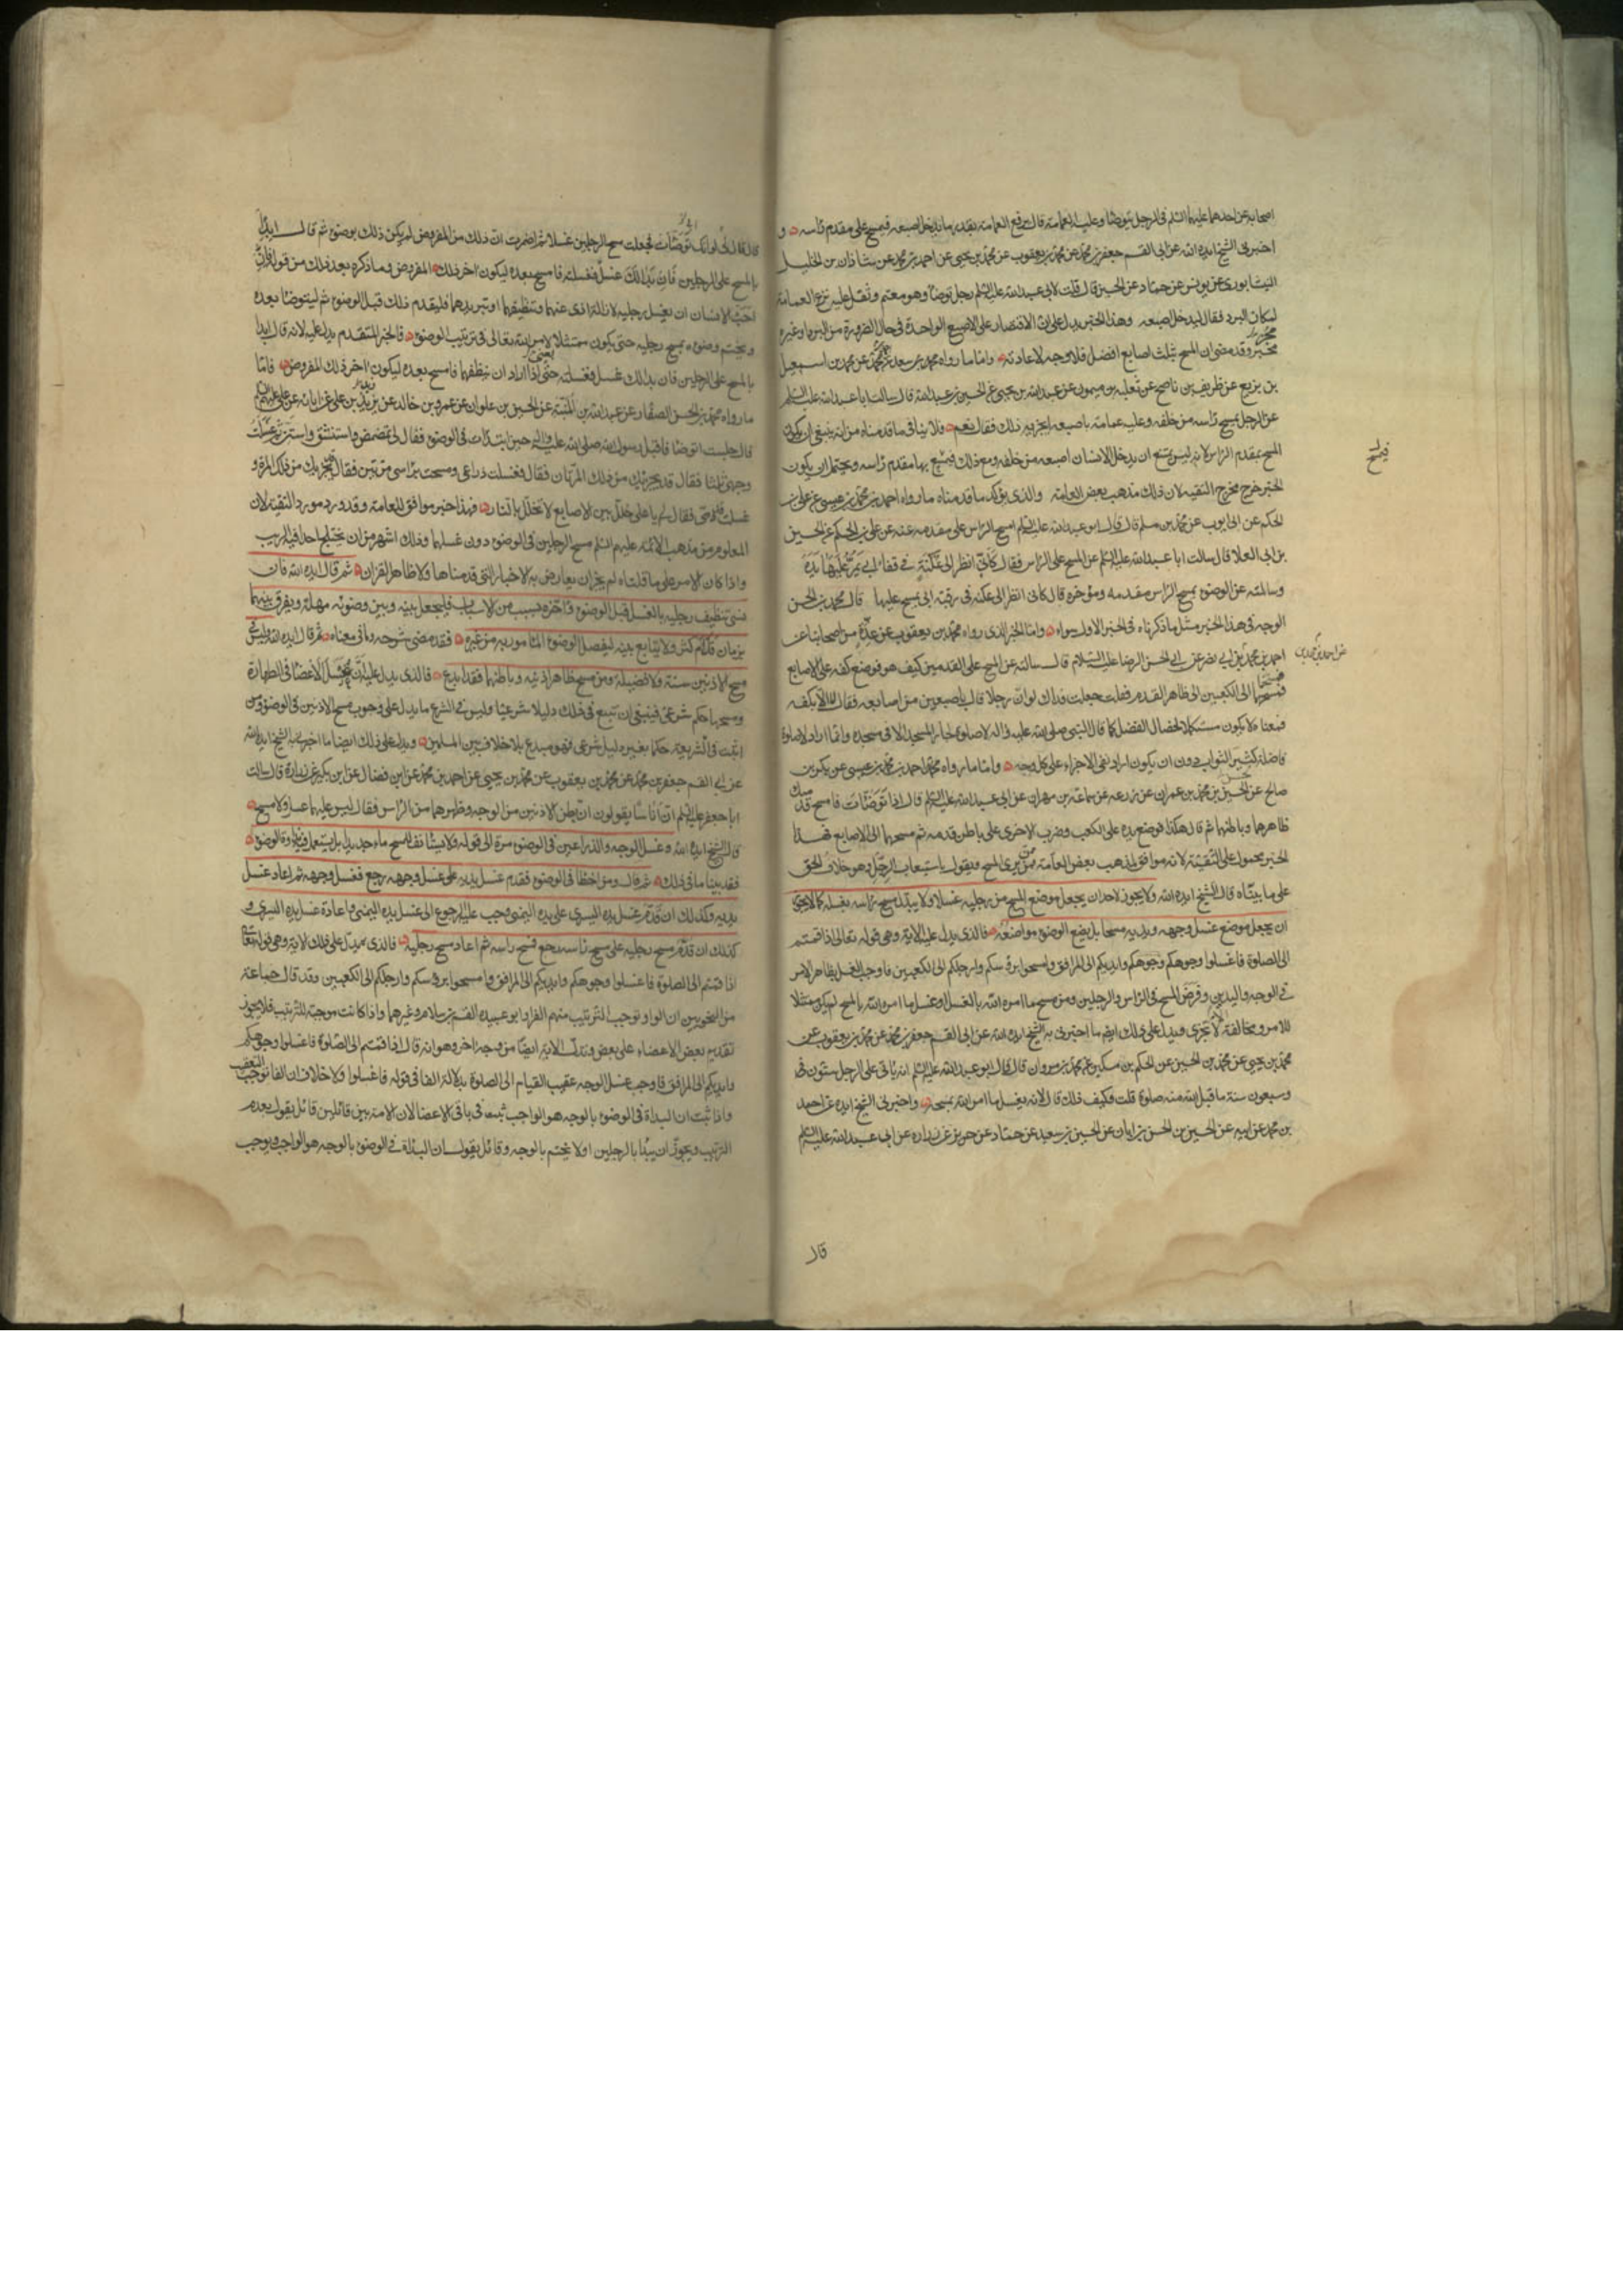 اصحابه عن احدهما عليهما السلم فى الرجل يتوضا وعليه العمامة قال يرفع العمامة بقدر ما يدخل اصبعه فيمسح على مقدم راسه و
اخبرنى الشيخ ايده الله عن ابى القسم جعفر بن محمد عن محمد بن يعقوب عن محمد بن يحيى عن احمد بن محمد عن شاذان بن الخليل
النيشابورى عن يونس عن حماد عن الحسين قال قلت لابى عبد الله عليه السلم رجل توضا وهو معتم وثقل عليه نزع العمامة
لمكان البرد فقال ليدخل اصبعه وهذا الخبر يدل على ان الاقتصار على الاصبع الواحدة فى حال الضرورة من البرد وغيره
مجزى وقد مضى ان المسح بثلث اصابع افضل فلا وجه لاعادته واما ما رواه محمد بن سعد عن محمد بن اسمعيل
بن بزيع عن ظريف بن ناصح عن ثعلبه بن ميمون عن عبد الله بن يحيى عن الحسين بن عبد الله قال سالت ابا عبد الله عليه السلم
عن الرجل يمسح راسه من خلفه وعليه عمامة باصبعه ايجزيه ذلك فقال نعم فلا ينافى ما قدمناه من انه ينبغى ان يكون
المسح بمقدم الراس لانه ليس يمتنع ان يدخل الانسان اصبعه من خلفه ومع ذلك فيمسح بها مقدم راسه ويحتمل ان يكون
الخبر خرج مخرج التقيه لان ذلك مذهب بعض العامة والذى يؤكد ما قدمناه ما رواه احمد بن محمد بن عيسى عن على بن
الحكم عن ابى ايوب عن محمد بن مسلم قال قال ابو عبد الله عليه السلم امسح الراس على مقدمه عنه عن على بن الحكم عن الحسين
بن ابى العلا قال سالت ابا عبد الله عليه السلم عن المسح على الراس فقال كَاَنّى انظر الى عُكْنَةٍ فى قفاء ابى يَمُرُّ عَلَيْهَا يَدَهُ
وسالته عن الوضوء بمسح الراس مقدمه ومؤخره قال كانى انظر الى عكنه فى رقبة ابى يمسح عليها قال محمد بن الحسن
الوجه فى هذا الخبر مثل ما ذكرناه فى الخبر الاول سواء واما الخبر الذى رواه محمد بن يعقوب عن عِدَّةٍ من اصحابنا عن
احمد بن محمد بن ابى نصر عن ابى الحسن الرضا عليه السلام قال سالته عن المسح على القدمين كيف هو فوضع كفه على الاصابع
فمسحها الى الكعبين الى ظاهر القدم فقلت جعلت فداك لو ان رجلا قال باصبعين من اصابعه فقال لا الا بكفه
فمعناه لا يكون مستكملا لخصال الفضل كما قال النبى صلى الله عليه واله لا صلوة لجار المسجد الا فى مسجده وانما اراد لا صلوة
فاضلة كثيرة الثواب دون ان يكون اراد نفى الاجزاء على كل وجه واما ما رواه محمد بن احمد بن محمد بن عيسى عن بكر بن
صالح عن الحسن بن محمد بن عمران عن زرعه عن سماعة بن مهران عن ابى عبد الله عليه السلم قال اذا توضأت فامسح قدميك
ظاهرهما وباطنهما ثم قال هكذا فوضع يده على الكعب وضرب الاخرى على باطن قدمه ثم مسحهما الى الاصابع فهذا
الخبر محمول على التقية لانه موافق لمذهب بعض العامة ممن يرى المسح ويقول باستيعاب الرجل وهو خلاف الحق
على ما بيناه قال الشيخ ايده الله ولا يجوز لاحد ان يجعل موضع المسح من رجليه غسلا ولا يبدل مسح راسه بغسله كما لا يجوز
ان يجعل موضع غسل وجهه ويديه مسحا بل يضع الوضوء مواضعه فالذى يدل عليه الاية وهى قوله تعالى اذا قمتم
الى الصلوة فاغسلوا وجوهكم وايديكم الى المرافق وامسحوا برؤسكم وارجلكم الى الكعبين فاوجب الغسل بظاهر الامر
فى الوجه واليدين وفرض المسح فى الراس والرجلين ومن مسح ما امره الله بالغسل او غسل ما امره الله بالمسح لم يكن ممتثلا
للامر ومخالفة الامر لا تجزى ويدل على ذلك ايضا ما اخبرنى به الشيخ ايده الله عن ابى القسم جعفر بن محمد عن محمد بن يعقوب عن
محمد بن يحيى عن محمد بن الحسين عن الحكم بن مسكين عن محمد بن مروان قال قال ابو عبد الله عليه السلم انه ياتى على الرجل ستون
وسبعون سنة ما قبل الله منه صلوة قلت فكيف ذلك قال لانه يغسل ما امر الله بمسحه واخبرنى الشيخ ايده عن احمد
بن محمد عن ابيه عن الحسين بن الحسن بن ابان عن الحسين بن سعيد عن حماد عن حريز عن زراره عن ابى عبد الله عليه السلم
قال
قال قال لى لو انك توضأت فجعلت مسح الرجلين غسلا ثم اضمرت ان ذلك من المفروض لم يكن ذلك بوضوء ثم قال ابدأ
بالمسح على الرجلين فان بدا لك غسل فغسلته فامسح بعده ليكون اخر ذلك المفروض وما ذكره بعد ذلك من قوله فان
احب الانسان ان يغسل رجليه لازالة اذى عنهما وتنظيفهما او تبريدهما فليقدم ذلك قبل الوضوء ثم ليتوضا بعده
ويختم وضوءه بمسح رجليه حتى يكون ممتثلا لامر الله تعالى فى ترتيب الوضوء فالخبر المتقدم يدل عليه لانه قال ابدا
بالمسح على الرجلين فان بدا لك غسل فغسلته يعنى اذا اراد ان ينظفهما فامسح بعده ليكون اخر ذلك المفروض فاما
ما رواه محمد بن الحسن الصفار عن عبد الله بن المنبه عن الحسين بن علوان عن عمرو بن خالد عن زيد بن على عن ابائه عن على عليهم السلم
قال جلست اتوضا فاقبل رسول الله صلى الله عليه واله حين ابتدات فى الوضوء فقال لى تمضمض واستنشق واستن ثم غسلت
وجهى ثلثا فقال قد يجزيك من ذلك المرتان فقال فغسلت ذراعى ومسحت براسى مرتين فقال قد يجزيك من ذلك المرة و
غسلت قدمى فقال لى يا على خلل بين الاصابع لا تخلل بالنار فهذا خبر موافق للعامة وقد ورد مورد التقية لان
المعلوم من مذهب الائمه عليهم السلم مسح الرجلين فى الوضوء دون غسلهما وذلك اشهر من ان يختلج احدا فيه الريب
واذا كان الامر على ما قلناه لم يجز ان يعارض به الاخبار التى قدمناها ولا ظاهر القران ثم قال ايده الله فان
نسى تنظيف رجليه بالغسل قبل الوضوء او اخره لسبب من الاسباب فليجعل بينه وبين وضوئه مهلة ويفرق بينهما
بزمان قل ام كثر ولا يتابع بينه ليفصل الوضوء المامور به من غيره فقد مضى شرحه وما فى معناه ثم قال ايده الله وليس فى
مسح الاذنين سنة ولا فضيلة ومن مسح ظاهر اذنيه وباطنهما فقد ابدع فالذى يدل عليه ان غسل الاعضا فى الطهارة
ومسحها حكم شرعى فينبغى ان يتبع فى ذلك دليلا شرعيا وليس فى الشرع ما يدل على وجوب مسح الاذنين فى الوضوء ومن
اثبت فى الشريعة حكما بغير دليل شرعى فهو مبدع بلا خلاف بين المسلمين ويدل على ذلك ايضا ما اخبرنى به الشيخ ايده الله
عن ابى القسم جعفر بن محمد عن محمد بن يعقوب عن محمد بن يحيى عن احمد بن محمد عن ابن فضال عن ابن بكير عن زرارة قال سالت
ابا جعفر عليه السلم ان اناسا يقولون ان بطن الاذنين من الوجه وظهرهما من الراس فقال ليس عليهما غسل ولا مسح
قال الشيخ ايده الله وغسل الوجه والذراعين فى الوضوء مرة الى قوله ولا يستانف للمسح ماء جديدا بل يستعمل فيه نداوة الوضوء
فقد بينا ما فى ذلك ثم قال ومن اخطا فى الوضوء فقدم غسل يديه على غسل وجهه رجع فغسل وجهه ثم اعاد غسل
يديه وكذلك ان قدم غسل يده اليسرى على يده اليمنى وجب عليه الرجوع الى غسل يده اليمنى واعادة غسل يده اليسرى و
كذلك ان قدم مسح رجليه على مسح راسه رجع فمسح راسه ثم اعاد مسح رجليه فالذى يدل على ذلك الاية وهى قوله تعالى
اذا قمتم الى الصلوة فاغسلوا وجوهكم وايديكم الى المرافق وامسحوا برؤسكم وارجلكم الى الكعبين وقد قال جماعة
من النحويين ان الواو توجب الترتيب منهم الفرا وابو عبيده القسم بن سلام وغيرهما واذا كانت موجبة للترتيب فلا يجوز
تقديم بعض الاعضاء على بعض وتدل الاية ايضا من وجه اخر وهو انه قال اذا قمتم الى الصلوة فاغسلوا وجوهكم
وايديكم الى المرافق فاوجب غسل الوجه عقيب القيام الى الصلوة بدلالة الفا فى قوله فاغسلوا ولا خلاف ان الفا توجب التعقيب
واذا ثبت ان البداة فى الوضوء بالوجه هو الواجب ثبت فى باقى الاعضا لان الامة بين قائلين قائل يقول بعدم
الترتيب ويجوز ان يبدا بالرجلين اولا يختم بالوجه وقائل يقول ان البداة فى الوضوء بالوجه هو الواجب ويوجب